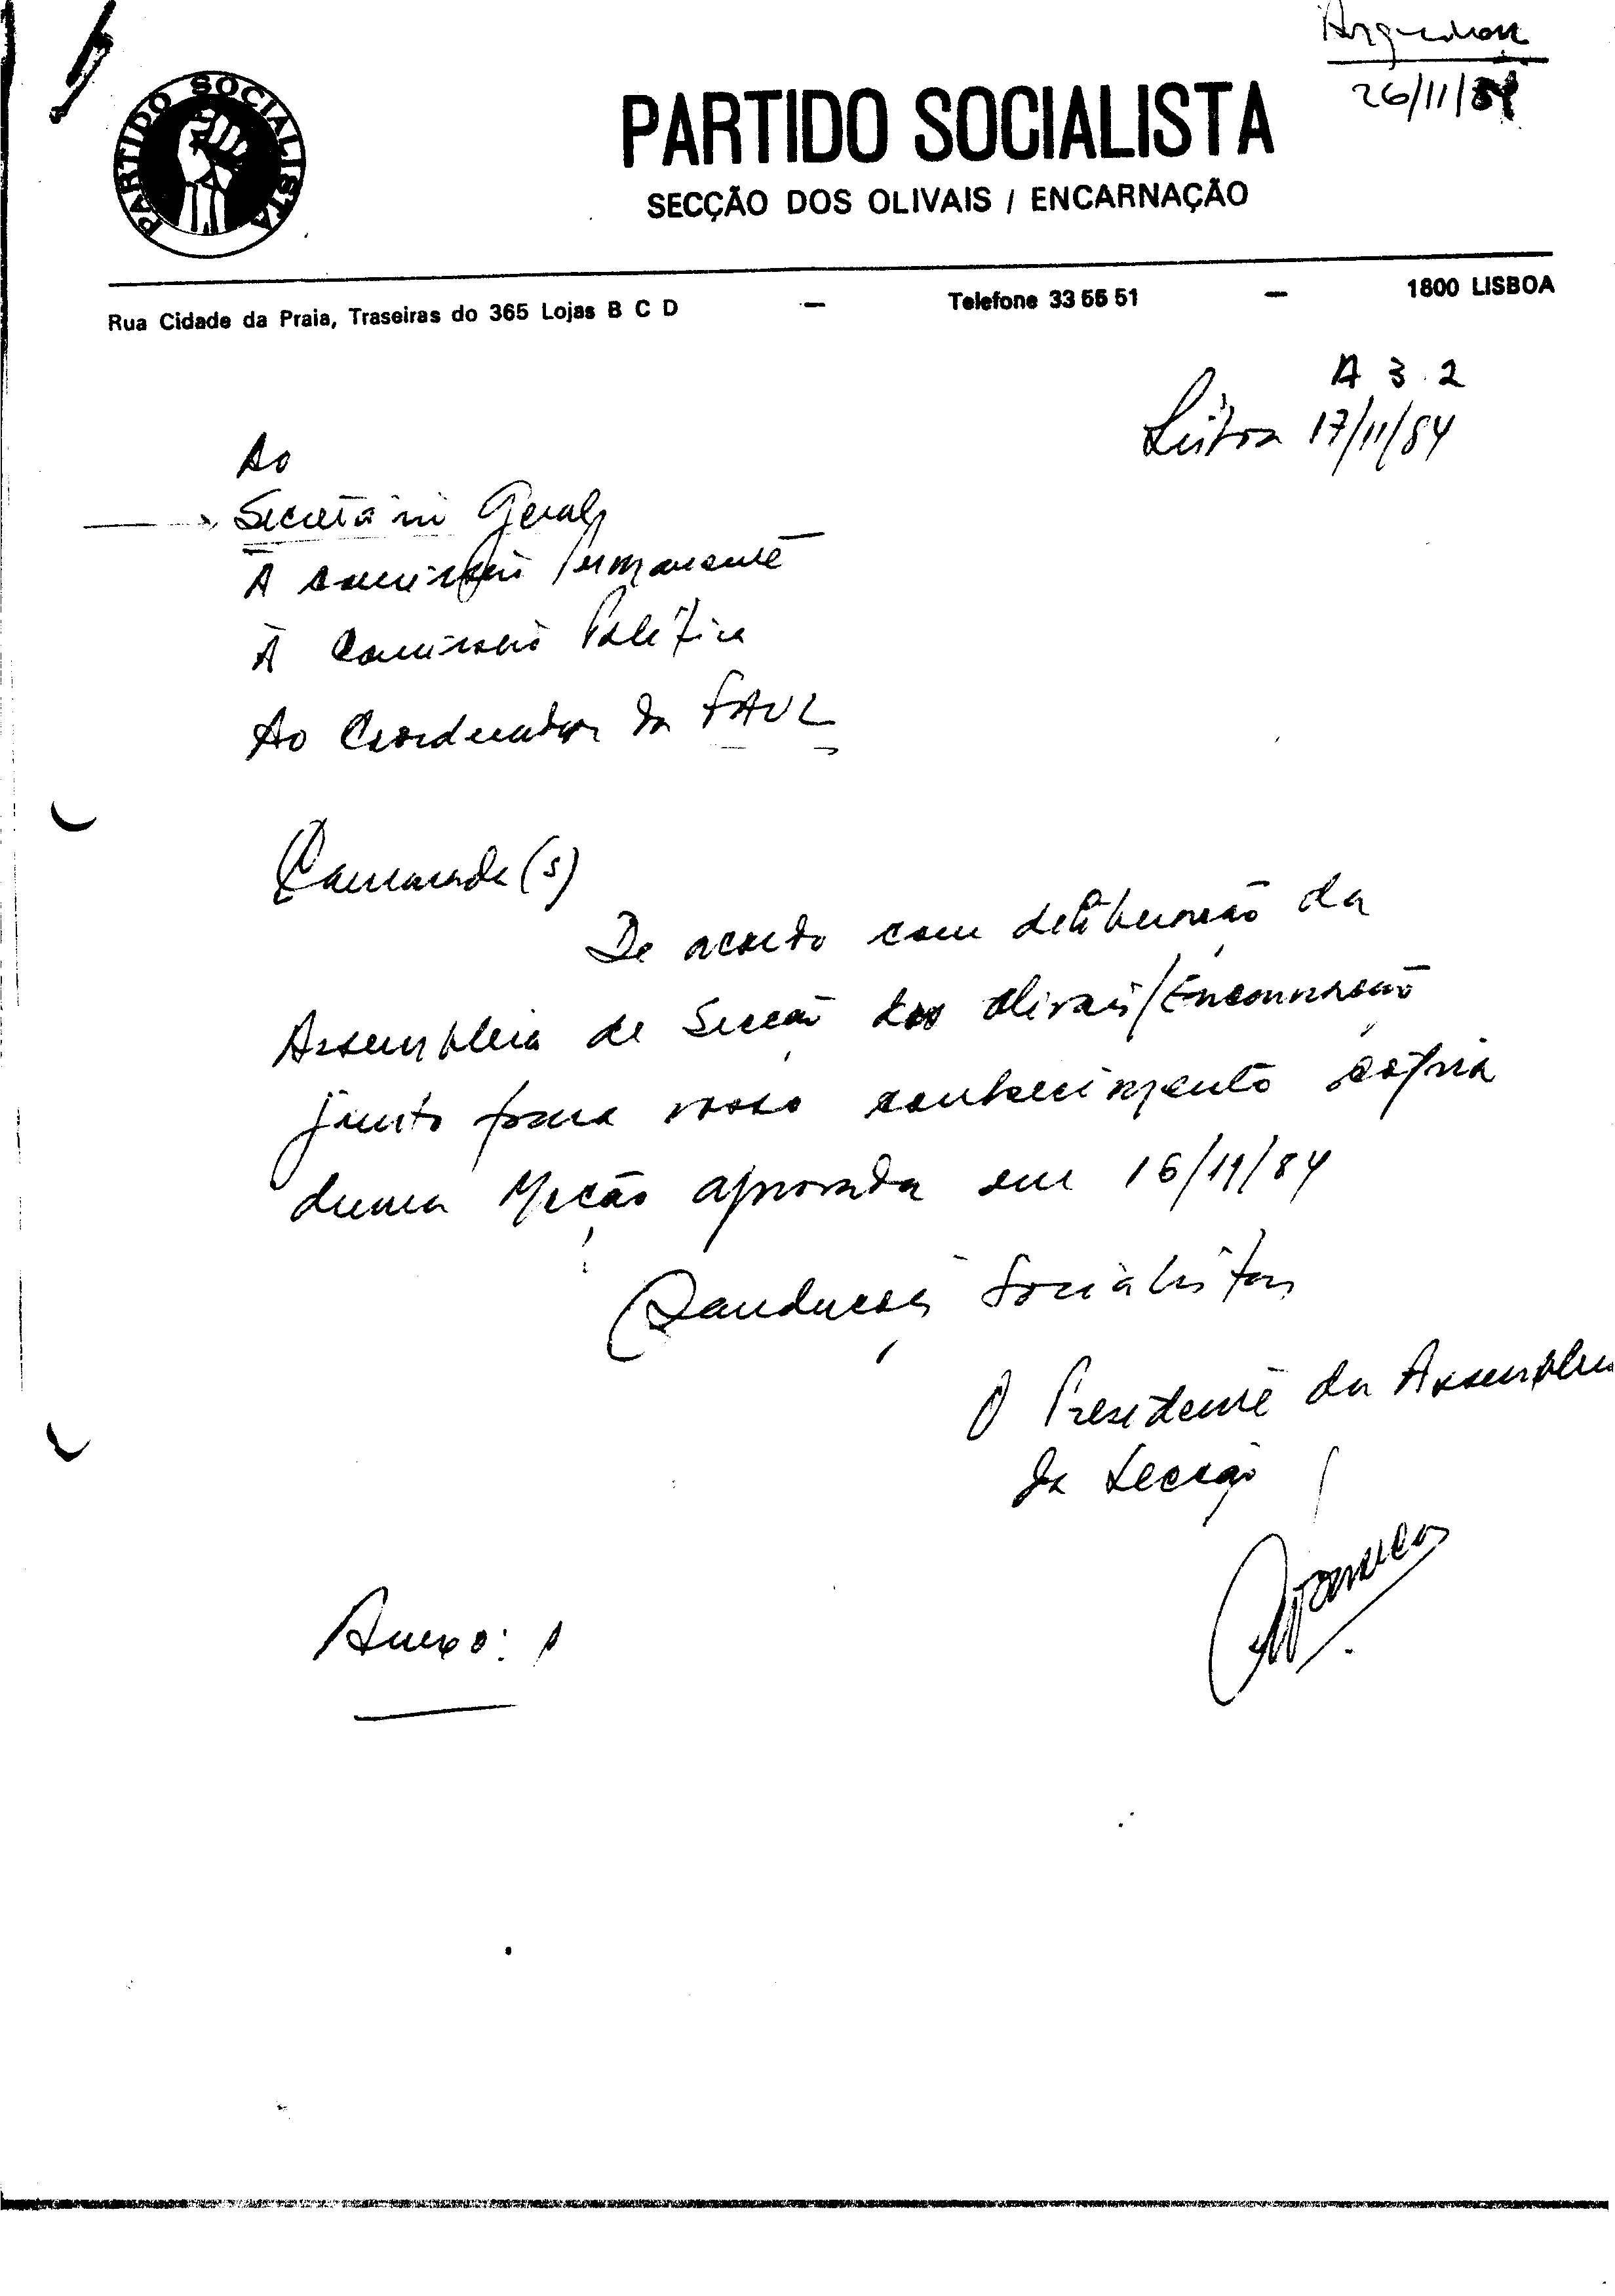 Arquivar
26/11/84
PARTIDO SOCIALISTA
PARTIDO SOCIALISTA
SECÇÃO DOS OLIVAIS / ENCARNAÇÃO
Rua Cidade da Praia, Traseiras do 365 Lojas B C D – Telefone 33 55 51 – 1800 LISBOA
A 3.2
Lisboa 17/11/84
Ao
Secretário Geral
À Comissão Permanente
À Comissão Política
Ao Coordenador da FAUL
Camarada(s)
De acordo com deliberação da
Assembleia de Secção dos Olivais/Encarnação
junto para vosso conhecimento cópia
duma Moção aprovada em 16/11/84
Saudações Socialistas
O Presidente da Assembleia
da Secção
Anexo: 1